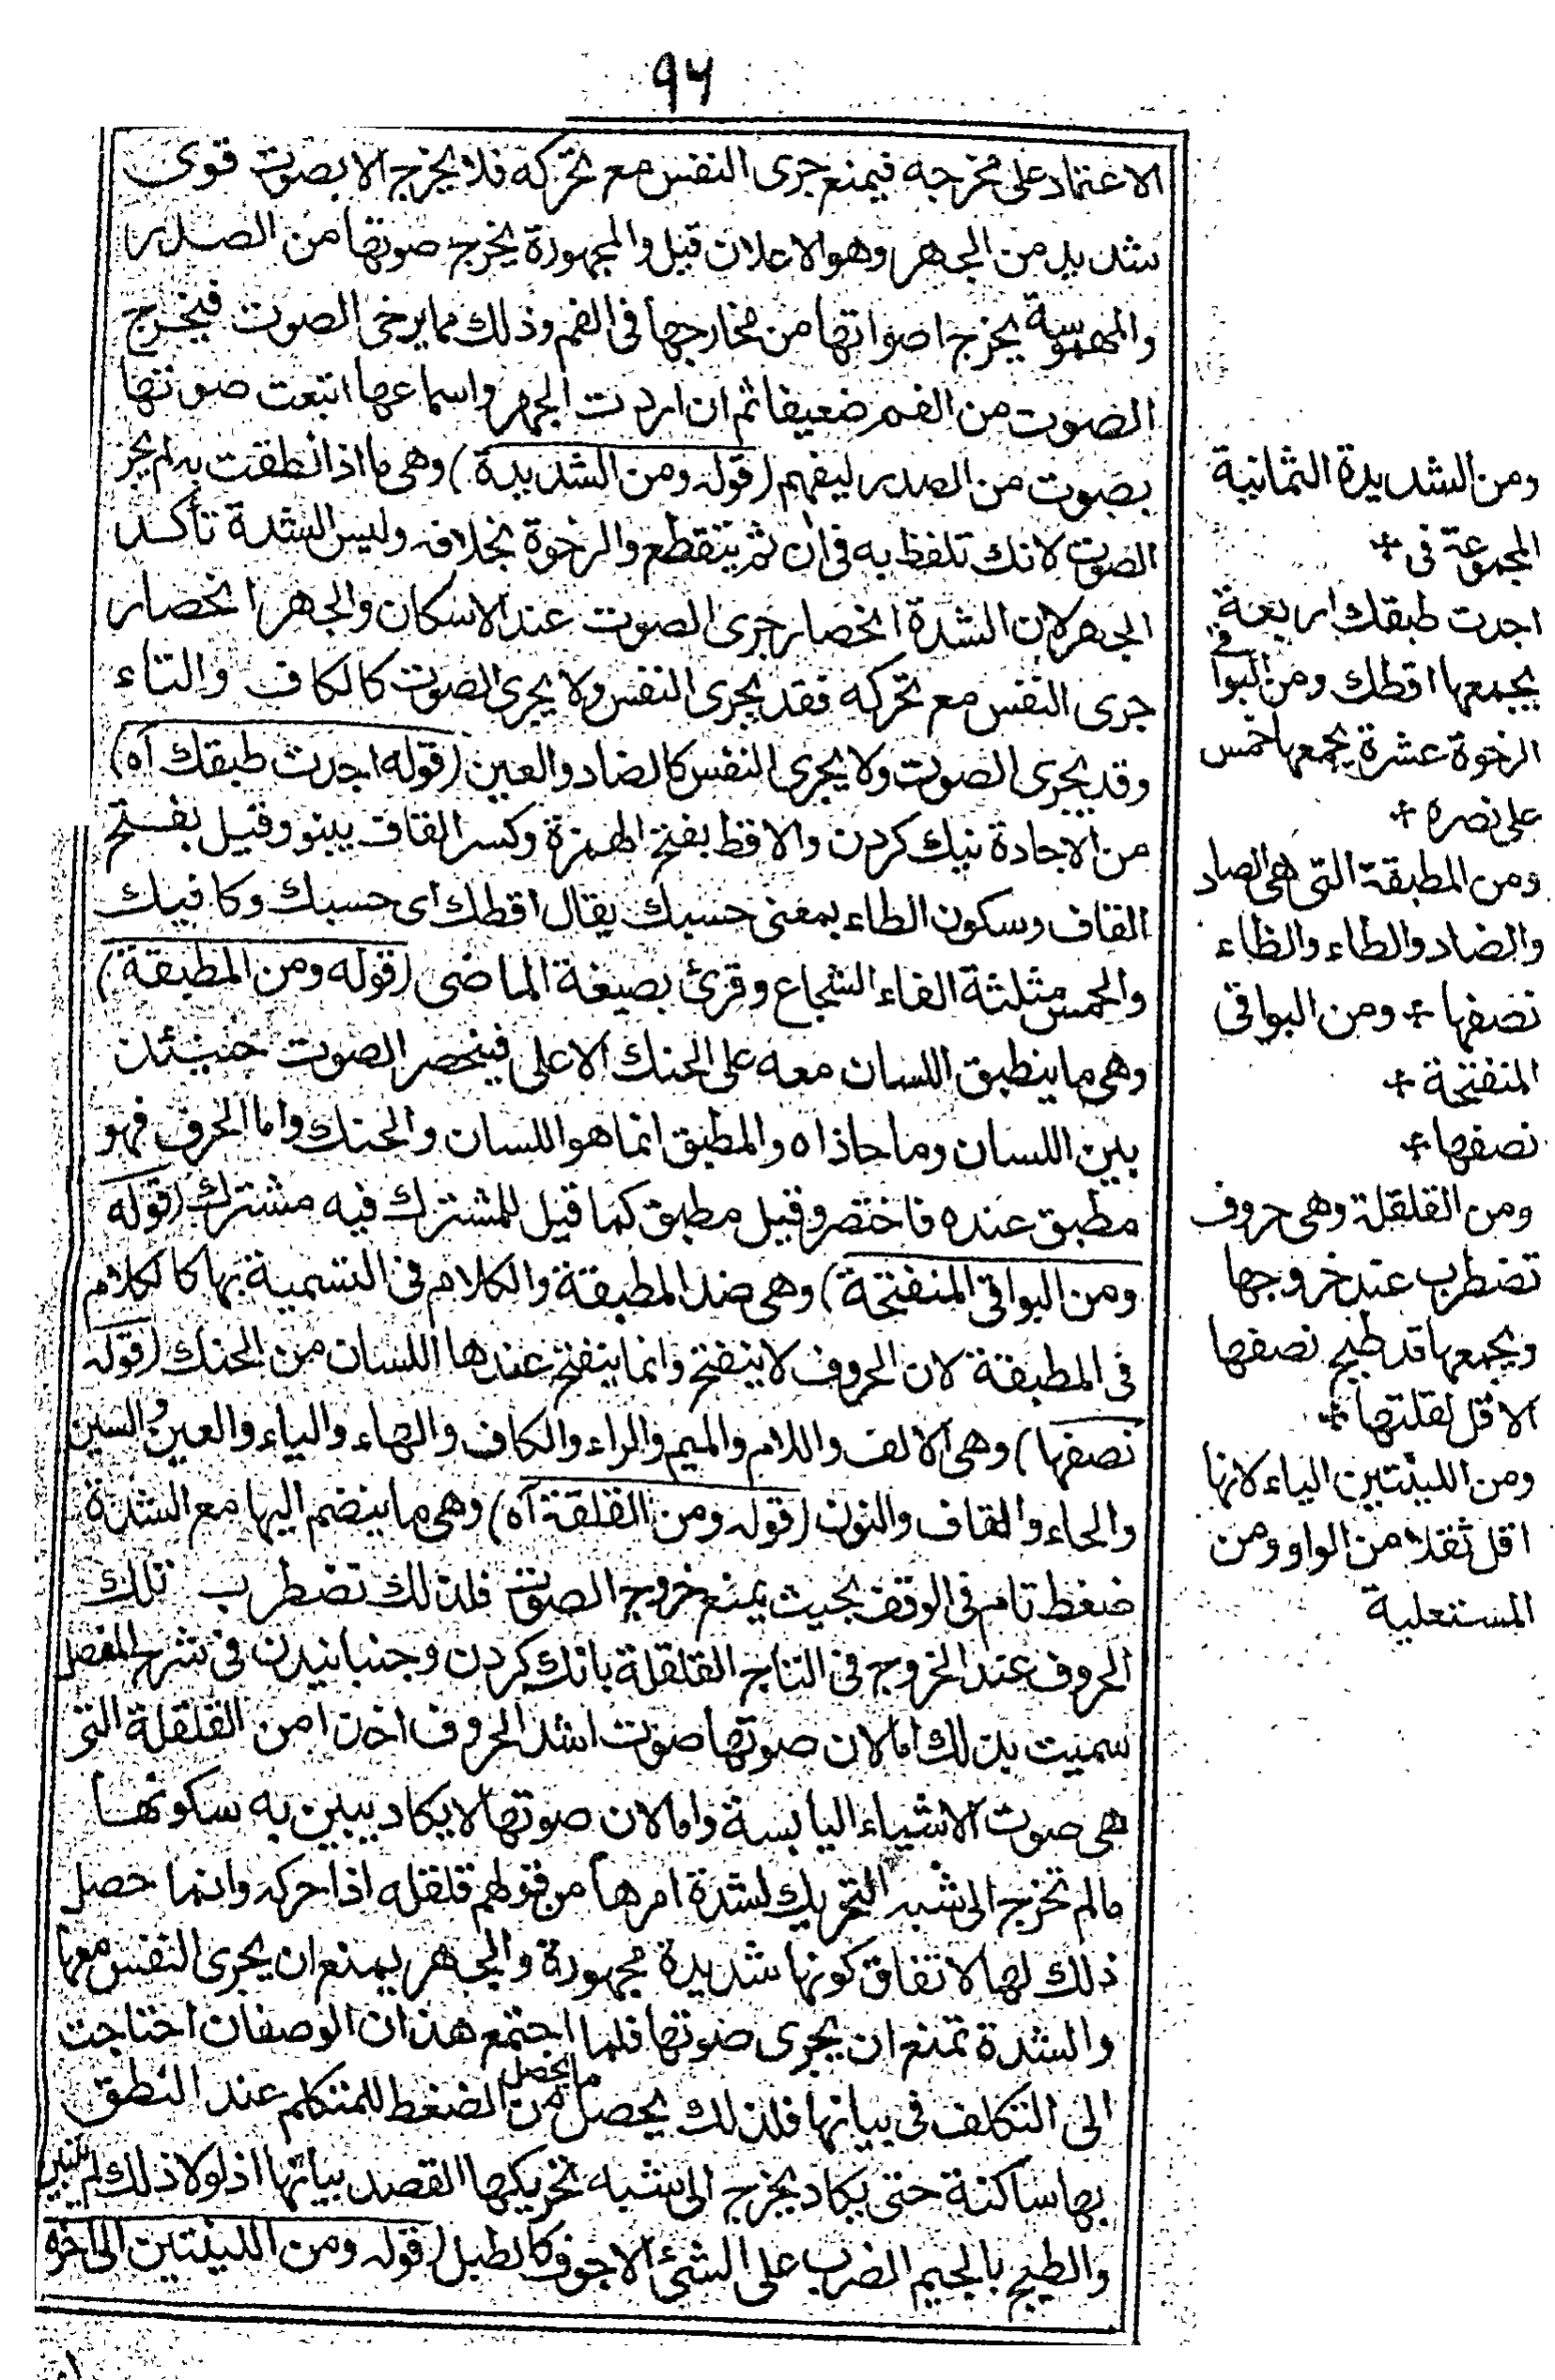 ٩٤
الاعتماد على مخرجه فيمنع جرى النفس مع تحركه فلا يخرج الا بصوت قوى
شديد من الجهر وهو الاعلان قيل والمجهورة يخرج صوتها من الصدر
والمهموسة يخرج اصواتها من مخارجها فى الفم وذلك مما يرخى الصوت فيخرج
الصوت من الفم ضعيفا ثم ان اردت الجهر واسماعها اتبعت صوتها
بصوت من الصدر ليفهم (قوله ومن الشديدة) وهى ما اذا نطقت به لم يجر
الصوت لانك تلفظ به فى ان ثم ينقطع والرخوة بخلافه وليس الشدة تأكد
الجهر لان الشدة انحصار جرى الصوت عند الاسكان والجهر انحصار
جرى النفس مع تحركه فقد يجرى النفس ولا يجرى الصوت كالكاف والتاء
وقد يجرى الصوت ولا يجرى النفس كالضاد والعين (قوله اجدت طبقك آه)
من الاجادة نيك كردن والاقط بفتح الهمزة وكسر القاف پينو وقيل بفتح
القاف وسكون الطاء بمعنى حسبك يقال اقطك اى حسبك وكافيك
والحمس مثلثة الفاء الشجاع وقرئ بصيغة الماضى (قوله ومن المطبقة)
وهى ما ينطبق اللسان معه على الحنك الاعلى فينحصر الصوت حينئذ
بين اللسان وما حاذاه والمطبق انما هو اللسان والحنك واما الحرف فهو
مطبق عنده فاختصر وقيل مطبق كما قيل للمشترك فيه مشترك (قوله
ومن البواقى المنفتحة) وهى ضد المطبقة والكلام فى التسمية بها كالكلام
فى المطبقة لان الحروف لا ينفتح وانما ينفتح عندها اللسان من الحنك (قوله
نصفها) وهى الالف واللام والميم والراء والكاف والهاء والياء والعين والسين
والحاء والقاف والنون (قوله ومن القلقة آه) وهى ما ينضم اليها مع الشدة
ضغط تام فى الوقف بحيث يمنع خروج الصوت فلذلك تضطرب تلك
الحروف عند الخروج فى التاج القلقلة بانك كردن وجنبانيدن فى شرح المفصل
سميت بذلك اما لان صوتها صوت اشد الحروف اخذا من القلقلة التى
هى صوت الاشياء اليابسة واما لان صوتها لا يكاد يبين به سكونها
مالم تخرج الى شبه التحريك لشدة امرها من قولهم قلقله اذا حركه وانما حصل
ذلك لها لاتفاق كونها شديدة مجهورة والجهر يمنع ان يجرى النفس معها
والشدة تمنع ان يجرى صوتها فلما اجتمع هذان الوصفان احتاجت
الى التكلف فى بيانها فلذلك يحصل ما يحصل من الضغط للمتكلم عند النطق
بها ساكنة حتى يكاد يخرج الى شبه تحريكها القصد بيانها اذ لولا ذلك لم يتبين
والطبج بالجيم الضرب على الشئ الاجوف كالطبل (قوله ومن اللينتين الى اخره
ومن الشديدة الثمانية
المجموعة فى
اجدت طبقك اربعة
يجمعها اقطك ومن البواقى
الرخوة عشرة يجمعها حمس
على نصره
ومن المطبقة التى هى الصاد
والضاد والطاء والظاء
نصفها ومن البواقى
المنفتحة
نصفها
ومن القلقلة وهى حروف
تضطرب عند خروجها
ويجمعها قد طبج نصفها
الاقل لقلتها
ومن اللينتين الياء لانها
اقل ثقلا من الواو ومن
المستعلية